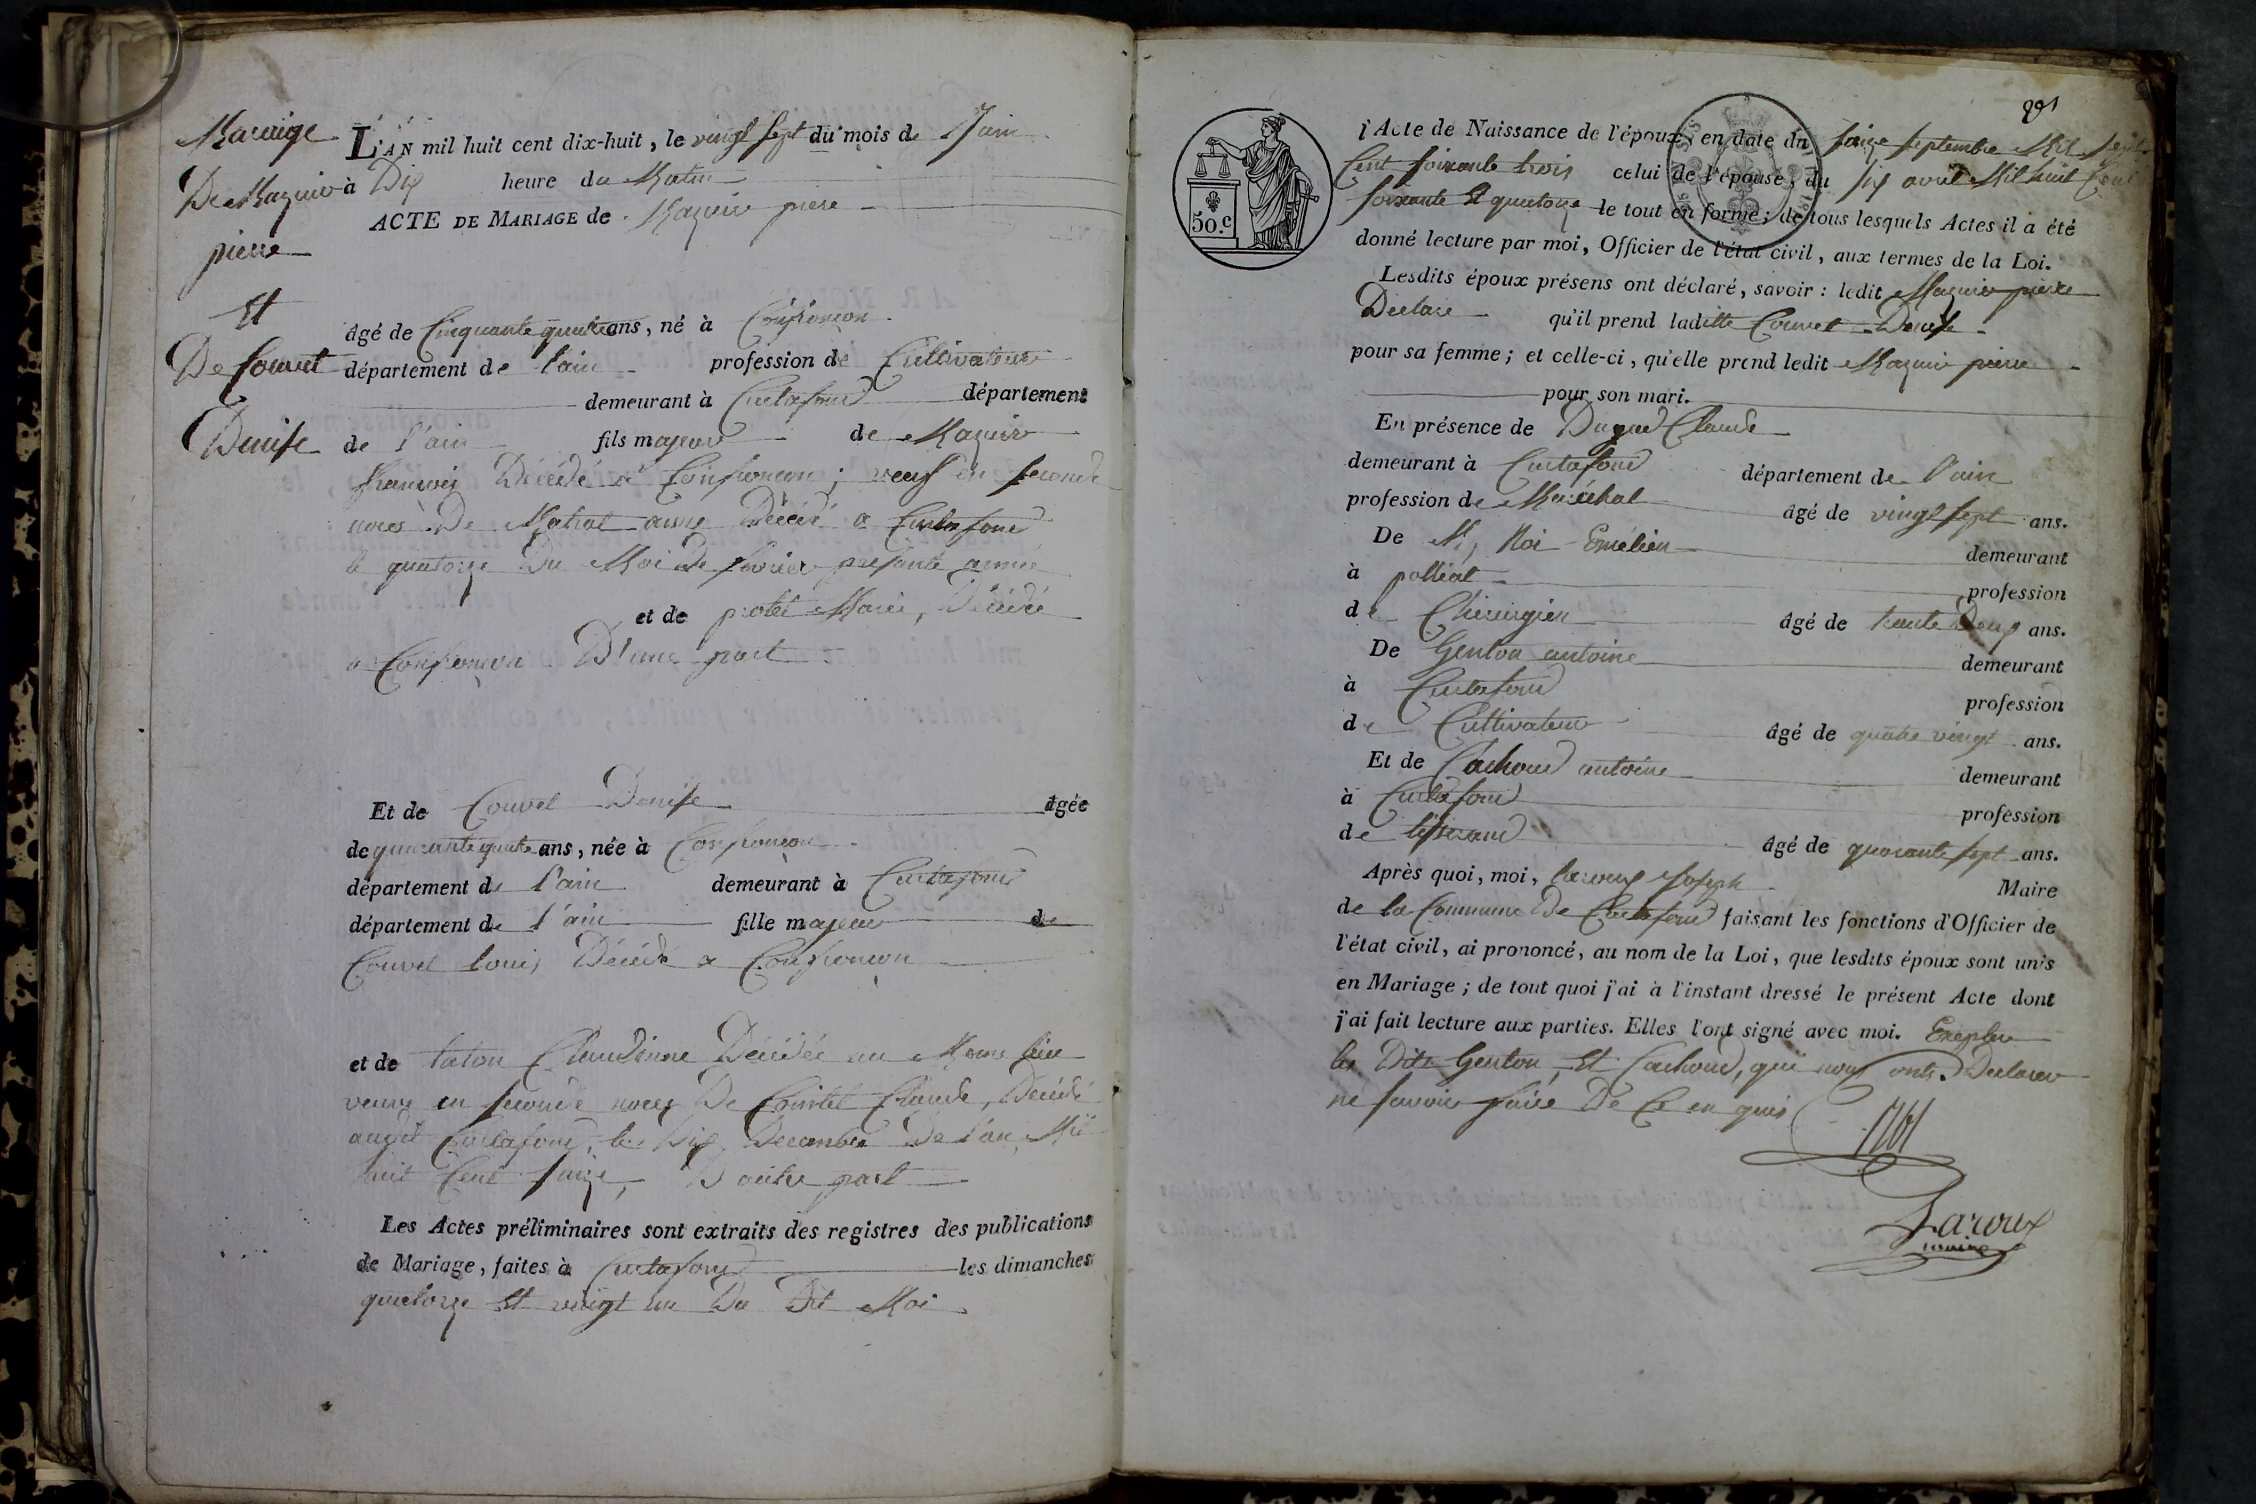 Mariage
De Mazuir
pierre
Et
De Couvet
Denise
L'AN mil huit cent dix-huit, le vingt sept du mois de Juin
à Dix heure du Matin
ACTE DE MARIAGE de Mazuir pierre
âgé de Cinquante quatre ans, né à Confrançon
département de l'ain profession de Cultivateur
demeurant à Curtafond département
de l'ain fils majeur de Mazuir
francois Décédé a Confrançon ; veuf en seconde
noces De anne Décédé a Curtafond
le quatorze Du Moi De fevrier presante année
et de protet Marie, Décédé
a Confrançon D'une part
Et de Couvet Denise âgée
de quarante quatre ans, née à Confrançon
département de l'ain demeurant à Curtafond
département de l'ain fille majeur de
Couvet louis Décédé a Confrançon
et de taton Claudinne Décédée au Meme lieu
veuve en seconde noces De Claude, Décédé
audit Curtafond, le Dix Decembre De l'an Mil
huit Cent saize, D'autre part
Les Actes préliminaires sont extraits des registres des publications
de Mariage, faites à Curtafond les dimanches
quatorze Et vingt un Du Dit Moi
50.c
l'Acte de Naissance de l'époux, en date du saize septembre Mil sept
Cent soixante trois celui de l'épouse, du six avril Mil huit Cent
soixante & quatorze le tout en forme ; de tous lesquels Actes il a été
donné lecture par moi, Officier de l'état civil, aux termes de la Loi.
Lesdits époux présens ont déclaré, savoir : ledit Mazuir pierre
Declare qu'il prend laditte Couvet Denise
pour sa femme ; et celle-ci, qu'elle prend ledit Mazuir pierre
pour son mari.
En présence de Claude
demeurant à Curtafond département de l'ain
profession de Maréchal âgé de vingt sept ans.
De M. Roi Emélien demeurant
à polliat profession
de Chirurgien âgé de trante Deux ans.
De Genton antoine demeurant
à Curtafond profession
de Cultivateur âgé de quatre vingt ans.
Et de Cachoud antoine demeurant
à Curtafond profession
de tisserand âgé de quarante sept ans.
Après quoi, moi, laroux Joseph Maire
de la Commune De Curtafond faisant les fonctions d'Officier de
l'état civil, ai prononcé, au nom de la Loi, que lesdits époux sont unis
en Mariage ; de tout quoi j'ai à l'instant dressé le présent Acte dont
j'ai fait lecture aux parties. Elles l'ont signé avec moi. Excepter
les Dits Genton Et Cachoud, qui nous onts Declarer
ne savoir faire De Ce en quis
Laroux
maire